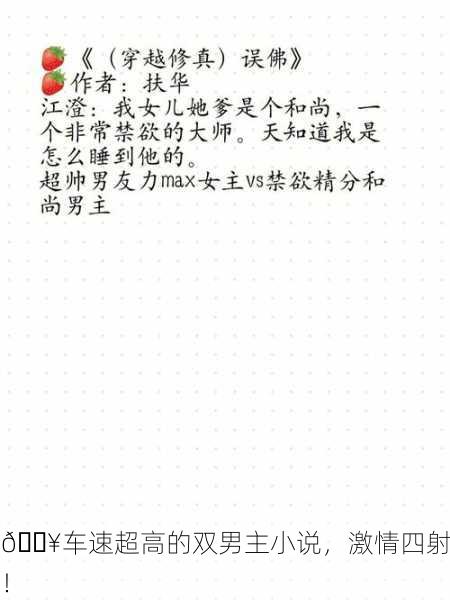 🍓《（穿越修真）误佛》
🍓作者：扶华
江澄：我女儿她爹是个和尚，一
个非常禁欲的大师。天知道我是
怎么睡到他的。
超帅男友力max女主vs禁欲精分和
尚男主
ð¥车速超高的双男主小说，激情四射
！